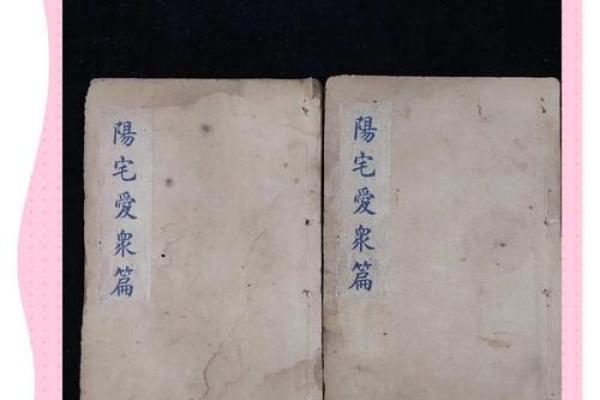 陽宅愛衆篇
陽宅愛衆篇